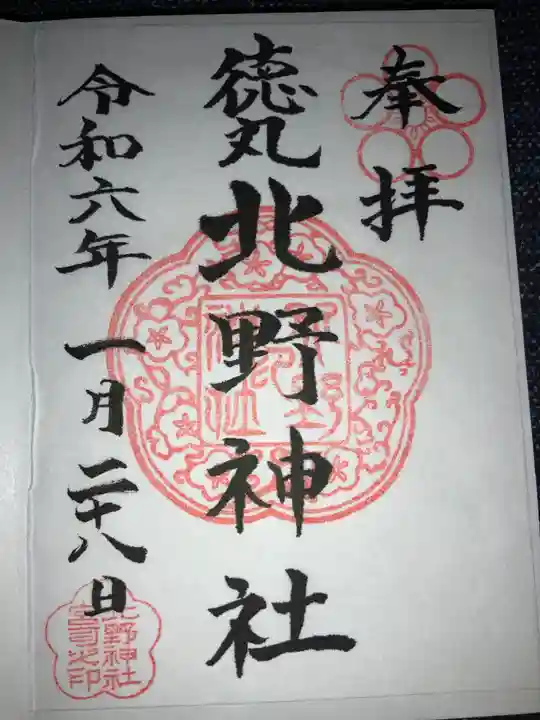 奉拝
徳丸北野神社
北野神社
令和六年一月二十八日
北野神社
宮司之印